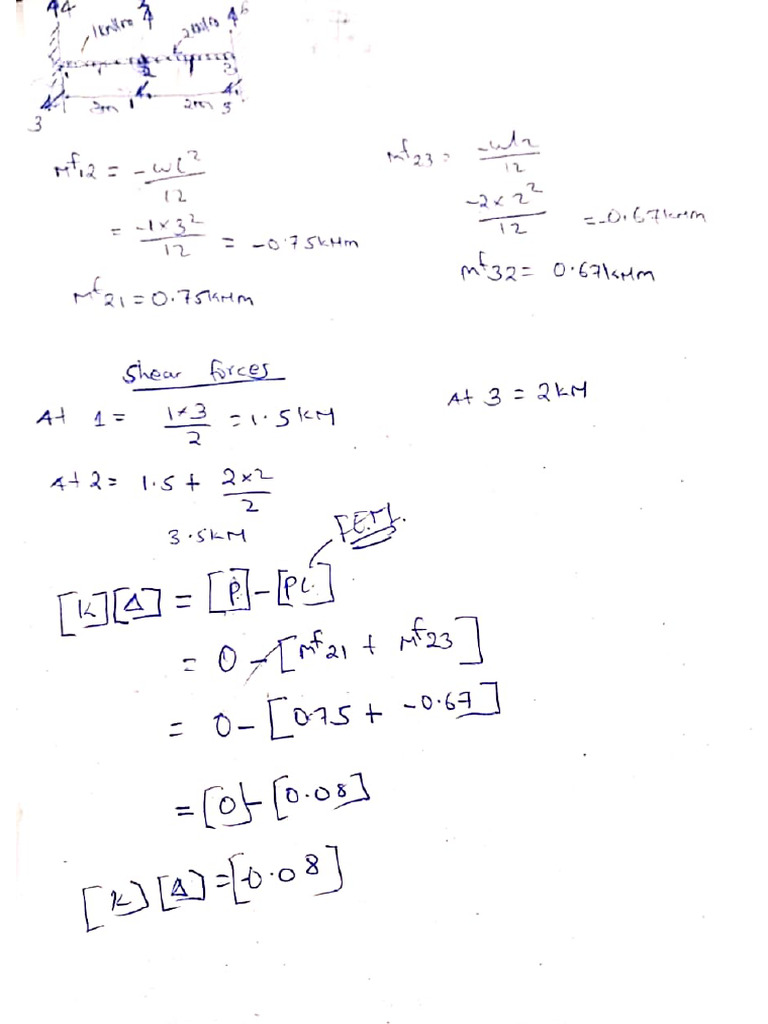 4 1kN/m 2kN/m 6
1 2 3
3m 1 2m 3
3
Mf12 = -wl²/12
= -1×3²/12 = -0.75kNm
Mf21 = 0.75kNm
Mf23 = -wl2/12
-2×2²/12 = -0.67kNm
Mf32 = 0.67kNm
Shear forces
At 1 = 1×3/2 = 1.5kN
At 3 = 2kN
At 2 = 1.5 + 2×2/2
3.5kN
F.E.M.
[K][Δ] = [P]-[PL]
= 0 - [Mf21 + Mf23]
= 0 - [0.75 + -0.67]
= [0]-[0.08]
[K][Δ] = [-0.08]